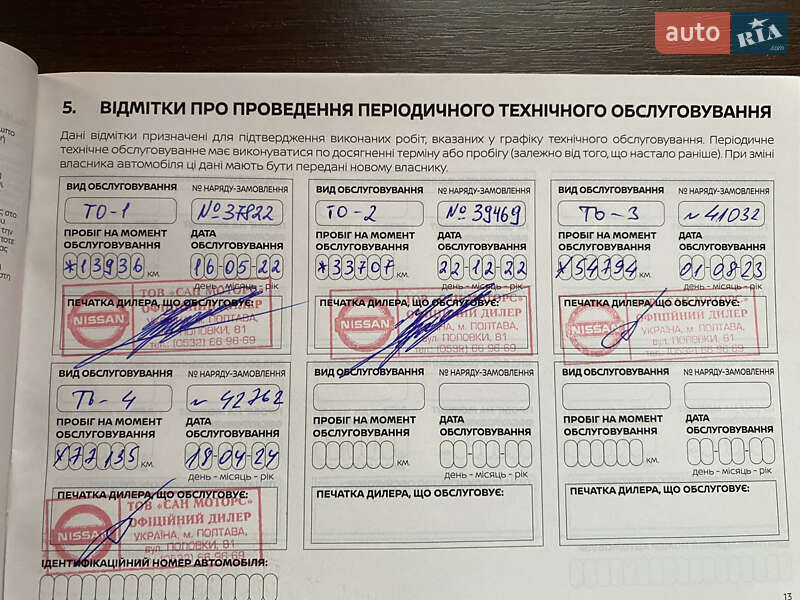 auto RIA .com
5. ВІДМІТКИ ПРО ПРОВЕДЕННЯ ПЕРІОДИЧНОГО ТЕХНІЧНОГО ОБСЛУГОВУВАННЯ
Дані відмітки призначені для підтвердження виконаних робіт, вказаних у графіку технічного обслуговування. Періодичне
технічне обслуговування має виконуватися по досягненні терміну або пробігу (залежно від того, що настало раніше). При зміні
власника автомобіля ці дані мають бути передані новому власнику.
ВИД ОБСЛУГОВУВАННЯ № НАРЯДУ-ЗАМОВЛЕННЯ
ТО-1 № 37822
ПРОБІГ НА МОМЕНТ ОБСЛУГОВУВАННЯ ДАТА ОБСЛУГОВУВАННЯ
*13936 км. 16-05-22
день - місяць - рік
ПЕЧАТКА ДИЛЕРА, ЩО ОБСЛУГОВУЄ:
ТОВ «САН МОТОРС»
ОФІЦІЙНИЙ ДИЛЕР
NISSAN
УКРАЇНА, м. ПОЛТАВА,
вул. ПОЛОВКИ, 81
тел.: (0532) 66 96-69
ВИД ОБСЛУГОВУВАННЯ № НАРЯДУ-ЗАМОВЛЕННЯ
ТО-2 № 39469
ПРОБІГ НА МОМЕНТ ОБСЛУГОВУВАННЯ ДАТА ОБСЛУГОВУВАННЯ
*33707 км. 22-12-22
день - місяць - рік
ПЕЧАТКА ДИЛЕРА, ЩО ОБСЛУГОВУЄ:
ОФІЦІЙНИЙ ДИЛЕР
NISSAN
УКРАЇНА, м. ПОЛТАВА,
вул. ПОЛОВКИ, 81
тел.: (0532) 66 96-69
ВИД ОБСЛУГОВУВАННЯ № НАРЯДУ-ЗАМОВЛЕННЯ
ТО-3 № 41032
ПРОБІГ НА МОМЕНТ ОБСЛУГОВУВАННЯ ДАТА ОБСЛУГОВУВАННЯ
*54794 км. 01-08-23
день - місяць - рік
ПЕЧАТКА ДИЛЕРА, ЩО ОБСЛУГОВУЄ:
ТОВ «САН МОТОРС»
ОФІЦІЙНИЙ ДИЛЕР
NISSAN
УКРАЇНА, м. ПОЛТАВА,
вул. ПОЛОВКИ, 81
(0532) 66 96-69
ВИД ОБСЛУГОВУВАННЯ № НАРЯДУ-ЗАМОВЛЕННЯ
ТО-4 № 42762
ПРОБІГ НА МОМЕНТ ОБСЛУГОВУВАННЯ ДАТА ОБСЛУГОВУВАННЯ
*77135 км. 18-04-24
день - місяць - рік
ПЕЧАТКА ДИЛЕРА, ЩО ОБСЛУГОВУЄ:
ТОВ «САН МОТОРС»
ОФІЦІЙНИЙ ДИЛЕР
NISSAN
УКРАЇНА, м. ПОЛТАВА,
вул. ПОЛОВКИ, 81
(0532) 66 96-69
ВИД ОБСЛУГОВУВАННЯ № НАРЯДУ-ЗАМОВЛЕННЯ
ПРОБІГ НА МОМЕНТ ОБСЛУГОВУВАННЯ ДАТА ОБСЛУГОВУВАННЯ
км.
день - місяць - рік
ПЕЧАТКА ДИЛЕРА, ЩО ОБСЛУГОВУЄ:
ВИД ОБСЛУГОВУВАННЯ № НАРЯДУ-ЗАМОВЛЕННЯ
ПРОБІГ НА МОМЕНТ ОБСЛУГОВУВАННЯ ДАТА ОБСЛУГОВУВАННЯ
км.
день - місяць - рік
ПЕЧАТКА ДИЛЕРА, ЩО ОБСЛУГОВУЄ:
ІДЕНТИФІКАЦІЙНИЙ НОМЕР АВТОМОБІЛЯ:
13